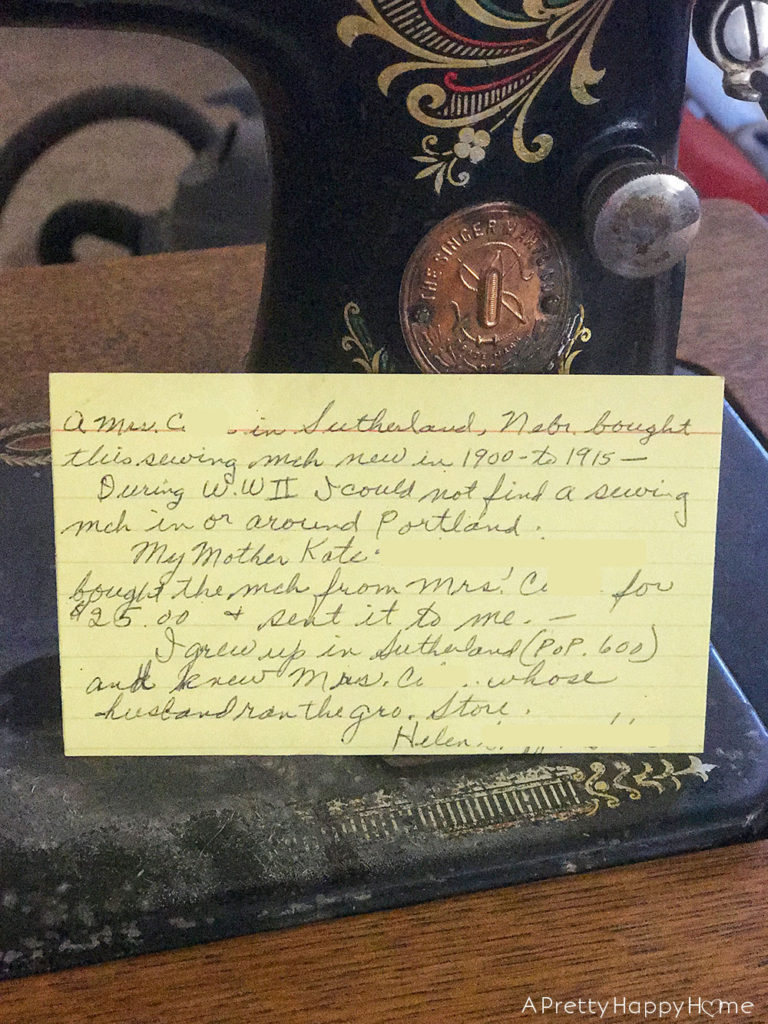 THE SINGER MANFG. CO.
A Mrs. C in Sutherland, Nebr. bought
this sewing mch new in 1900 - to 1915 —
During W.W II I could not find a sewing
mch in or around Portland.
My Mother Kate
bought the mch from Mrs. C for
$25.00 + sent it to me. —
I grew up in Sutherland (POP. 600)
and knew Mrs. C whose
husband ran the gro. Store.
Helen
A PRETTY HAPPY HOME